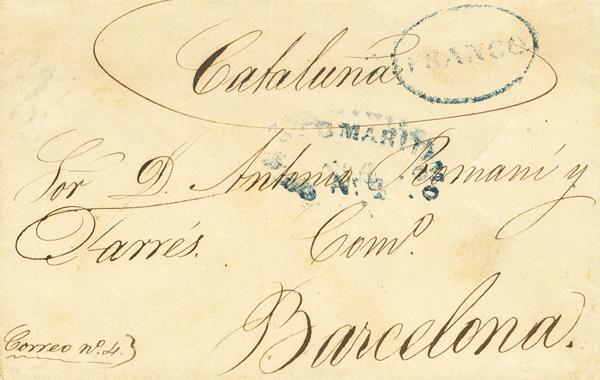 Cataluña
FRANCO
Sor D. Antonio Romaní y
Tarrés. Comº.
Barcelona.
Correo nº. 4.